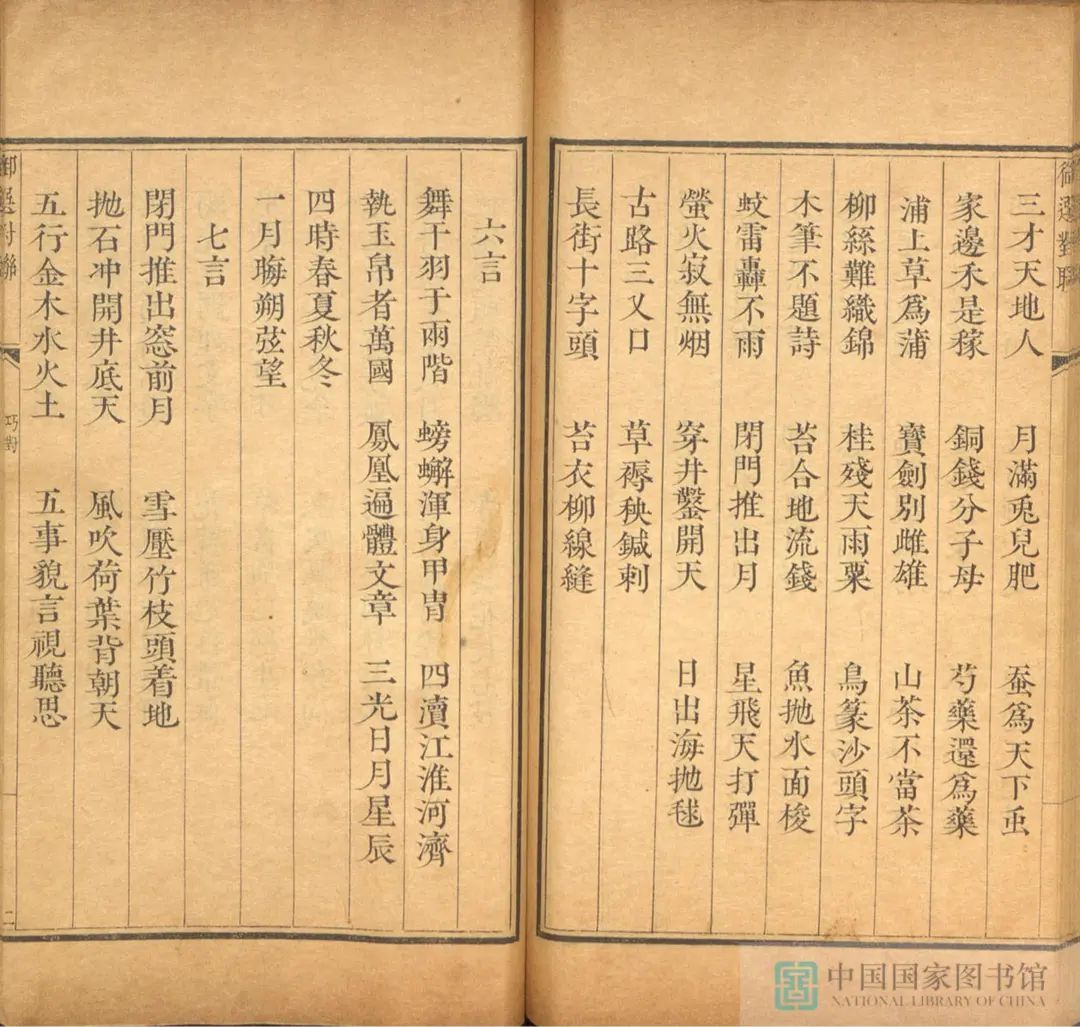 三才天地人　月滿兎兒肥　蚕爲天下䖝
家邊禾是稼　銅錢分子母　芍藥還爲藥
浦上草爲蒲　寶劍别雌雄　山茶不當茶
柳絲難織錦　桂殘天雨粟　鳥篆沙頭字
木筆不題詩　苔合地流錢　魚抛水面梭
蚊雷轟不雨　閉門推出月　星飛天打彈
螢火寂無烟　穿井鑿開天　日出海抛毬
古路三叉口　草褥秧鍼刺
長街十字頭　苔衣柳線縫
六言
舞干羽于兩階　螃蠏渾身甲冑　四瀆江淮河濟
執玉帛者萬國　鳳凰遍體文章　三光日月星辰
四時春夏秋冬
一月晦朔弦望
七言
閉門推出窓前月　雪壓竹枝頭着地
抛石冲開井底天　風吹荷葉背朝天
五行金木水火土　五事貌言視聽思
選對聯
巧對
二
中国国家图书馆
NATIONAL LIBRARY OF CHINA